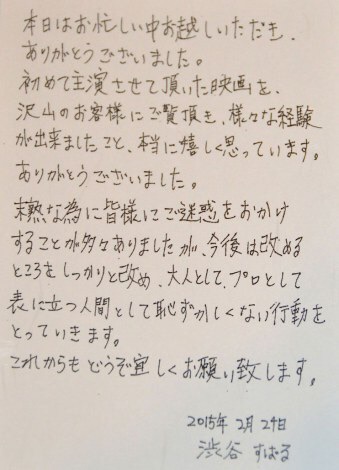 本日はお忙しい中お越しいただき、
ありがとうございました。
初めて主演させて頂いた映画を、
沢山のお客様にご覧頂き、様々な経験
が出来ましたこと、本当に嬉しく思っています。
ありがとうございました。
未熟な為に皆様にご迷惑をおかけ
することが多々ありましたが、今後は改める
ところをしっかりと改め、大人として、プロとして
表に立つ人間として恥ずかしくない行動を
とっていきます。
これからもどうぞ宜しくお願い致します。
2015年 2月 24日
渋谷 すばる